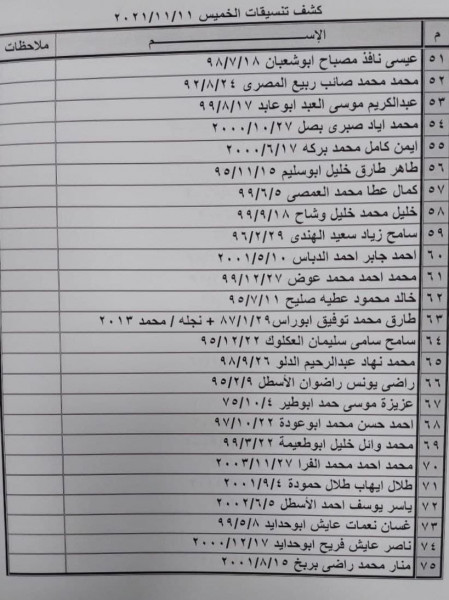 كشف تنسيقات الخميس ٢٠٢١/١١/١١
م الإســــــم ملاحظات
٥١ عيسى نافذ مصباح ابوشعبان ٩٨/٧/١٨
٥٢ محمد محمد صائب ربيع المصرى ٩٢/٨/٢٤
٥٣ عبدالكريم موسى العبد ابوعابد ٩٩/٨/١٧
٥٤ محمد اياد صبرى بصل ٢٠٠٠/١٠/٢٧
٥٥ ايمن كامل محمد بركه ٢٠٠٠/٦/١٧
٥٦ طاهر طارق خليل ابوسليم ٩٥/١١/١٥
٥٧ كمال عطا محمد العمصى ٩٩/٦/٥
٥٨ خليل محمد خليل وشاح ٩٩/٩/١٨
٥٩ سامح زياد سعيد الهندى ٩٦/٢/٢٩
٦٠ احمد جابر احمد الدباس ٢٠٠١/٥/١٠
٦١ محمد احمد محمد عوض ٩٩/١٢/٢٧
٦٢ خالد محمود عطيه صليح ٩٥/٧/١١
٦٣ طارق محمد توفيق ابوراس ٨٧/١/٢٩ + نجله / محمد ٢٠١٣
٦٤ سامح سامى سليمان العكلوك ٩٥/١٢/٢٢
٦٥ محمد نهاد عبدالرحيم الدلو ٩٨/٩/٢٦
٦٦ راضى يونس راضوان الأسطل ٩٥/٢/٩
٦٧ عزيزة موسى حمد ابوطير ٧٥/١٠/٤
٦٨ احمد حسن محمد ابوعودة ٩٧/١٠/٢٢
٦٩ محمد وائل خليل ابوطعيمة ٩٩/٣/٢٢
٧٠ محمد احمد محمد الفرا ٢٠٠٣/١١/٢٧
٧١ طلال ايهاب طلال حمودة ٢٠٠١/٩/٤
٧٢ ياسر يوسف احمد الأسطل ٢٠٠٢/٦/٥
٧٣ غسان نعمات عايش ابوحدايد ٩٩/٥/٨
٧٤ ناصر عايش فريح ابوحدايد ٢٠٠٠/١٢/١٧
٧٥ منار محمد راضى بربخ ٢٠٠١/٨/١٥